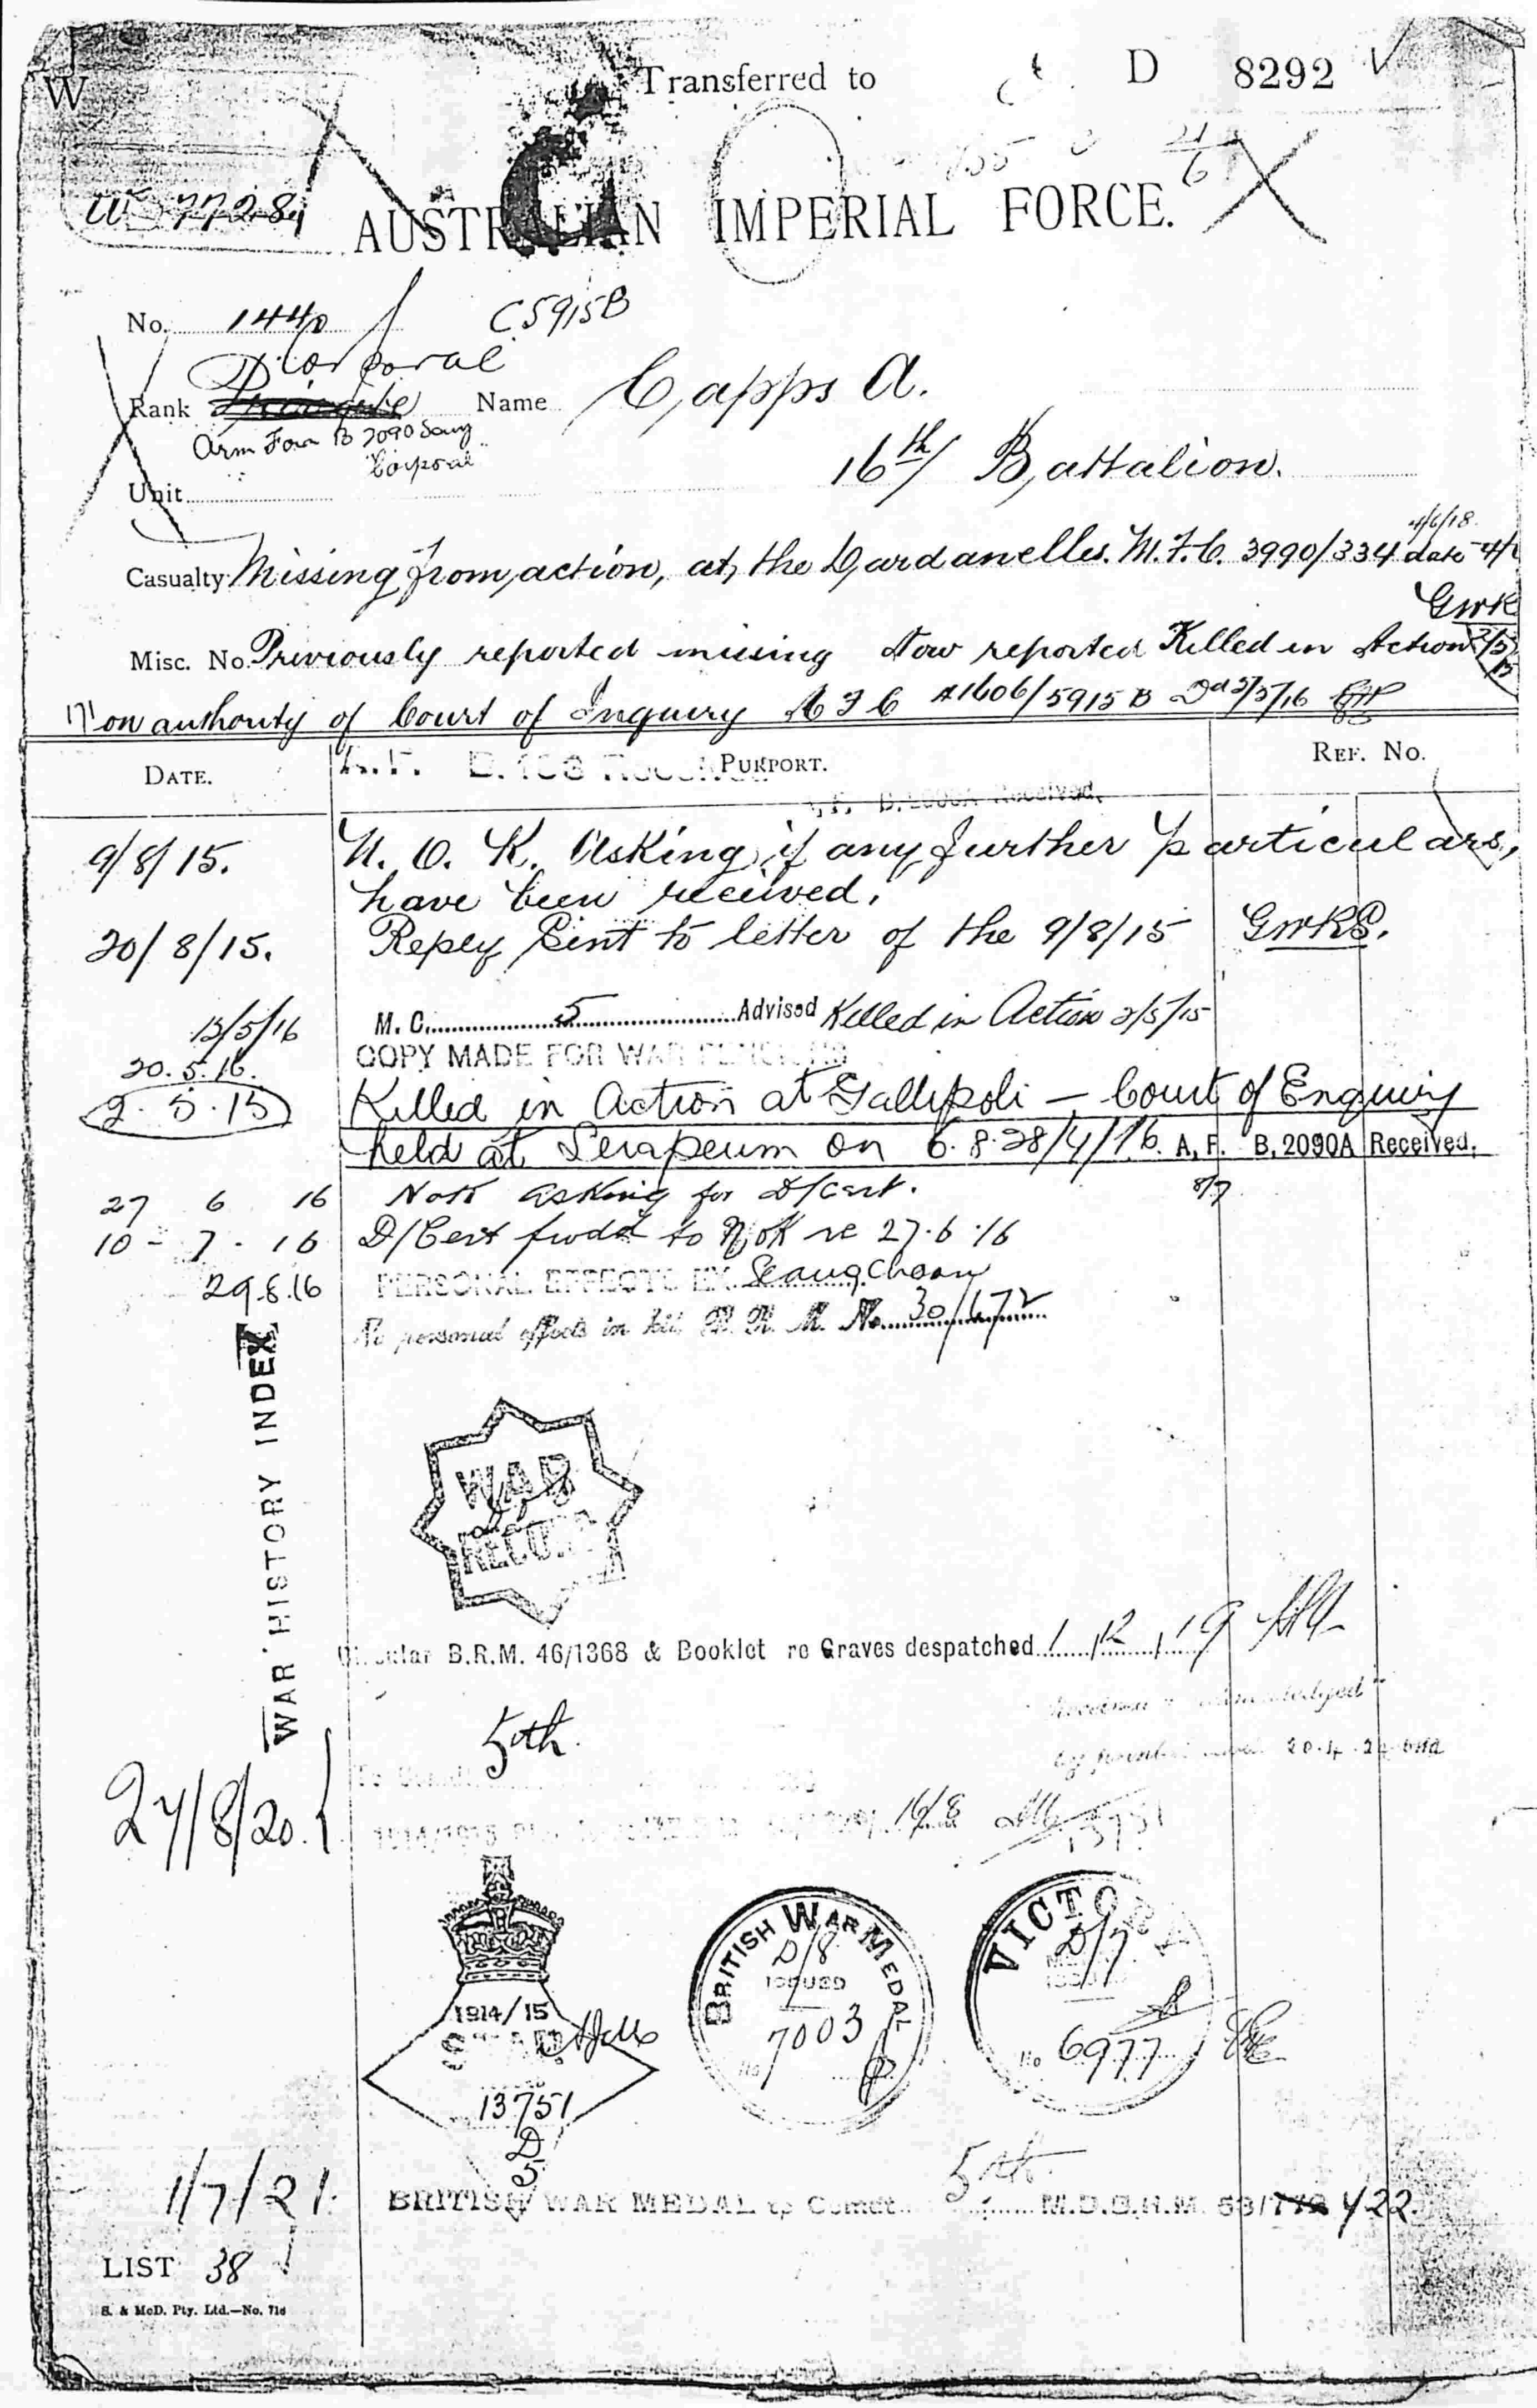 W Transferred to D 8292
21/6
W 77284
AUSTRALIAN IMPERIAL FORCE.
No. 1440 C5915B
Corporal
Rank Private Name Capps A.
Arm Form B 2090 Say
"Corporal"
16th/ Battalion.
Unit
4/6/18.
Casualty Missing from action, at, the Dardanelles. M.F.C. 3990/334 date 4/
GWK
Misc. No. Previously reported missing Now reported Killed in Action 2/5/15
on authority of Court of Inquiry 1606/5915 B Dd 5/16
DATE. PURPORT. REF. No.
A.F. B.103 Received
A.F. B.2090A Received.
9/8/15. N. O. K. Asking if any further particulars,
have been received.
20/8/15. Reply Sent to letter of the 9/8/15 GWKS.
13/5/16 M. C. 5 Advised Killed in Action 2/5/15
20.5.16. COPY MADE FOR WAR PENSIONS
2.5.15 Killed in Action at Gallipoli – Court of Enquiry
held at Serapeum on 6.8.28/4/16. A.F. B.2090A Received.
27 6 16 NoK asking for D/Cert. 8/7
10 - 7 - 16 D/Cert fwdd to NoK re 27.6.16
29.8.16 PERSONAL EFFECTS EX Seang Choon
No personal effects in kit B. R. M. No. 30/672
WAR HISTORY INDEX
WAR
RECORD
Circular B.R.M. 46/1368 & Booklet re Graves despatched 1/12/19
5th.
20.4.20
27/8/20.
16/8
1914/15
STAR
13751
D
5
BRITISH WAR MEDAL
D/8
ISSUED
No 7003
VICTORY
D/7
No 6977
5th.
1/7/21. BRITISH WAR MEDAL to Comdt. M.D.B.R.M. 53/772 422.
LIST 38
S. & McD. Pty. Ltd.—No. 716